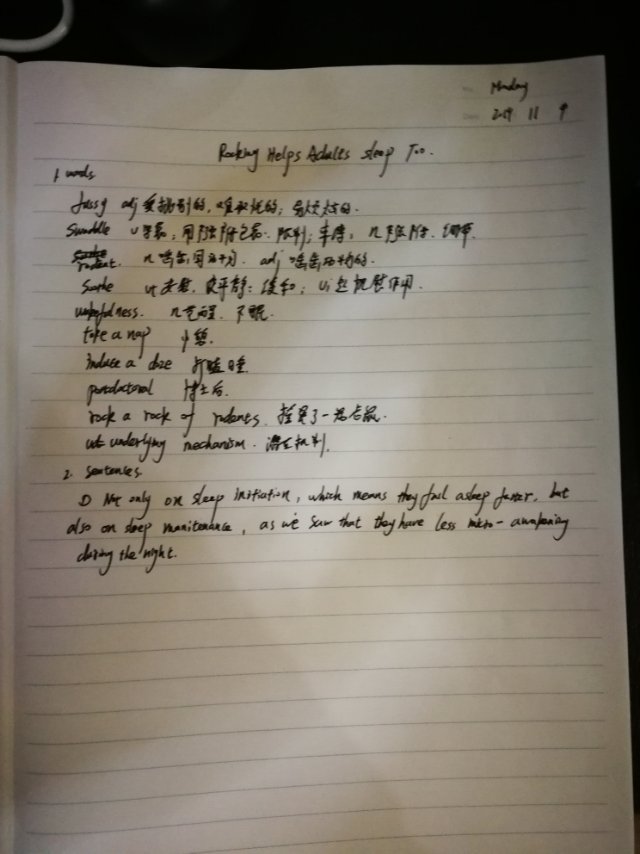 Monday
2019 11 4
Rocking Helps Adults sleep Too.
1. words
fussy adj 爱挑剔的,难取悦的;
Swaddle v 用 包裹. 限制; 束缚; n 绷带.
rodent. n 啮齿 adj 啮齿 的.
Soothe vt 安慰, 使平静; 缓和; vi 起抚慰作用.
wakefulness. n 不眠.
take a nap 小憩.
induce a doze 打瞌睡
postdoctoral 博士后.
rock a rock of rodents.
underlying mechanism. 潜在机制
2. Sentences
① Not only on sleep initiation, which means they fall asleep faster, but
also on sleep manitenance, as we saw that they have less micro-awakening
during the night.